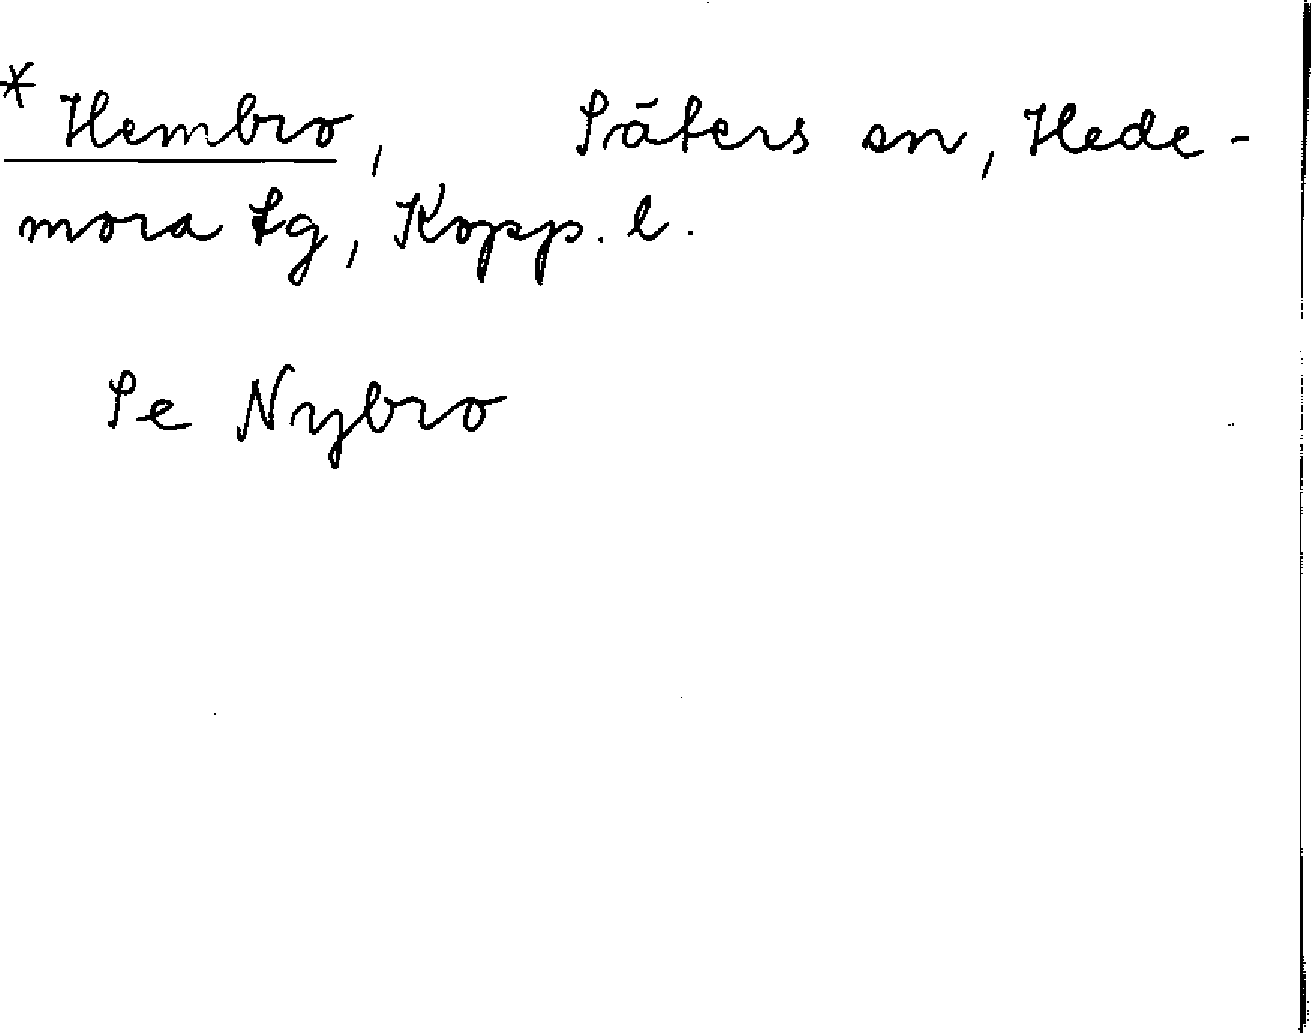 * Hembro, Säters sn, Hede-
mora tg, Kopp. l.
Se Nybro